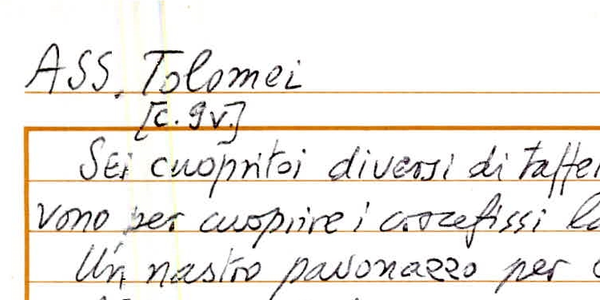 ASS, Tolomei
[c. 9v.]
Sei cuopritoi diversi di taffe
vono per cuoprire i crocefissi l
Un nastro pavonazzo per